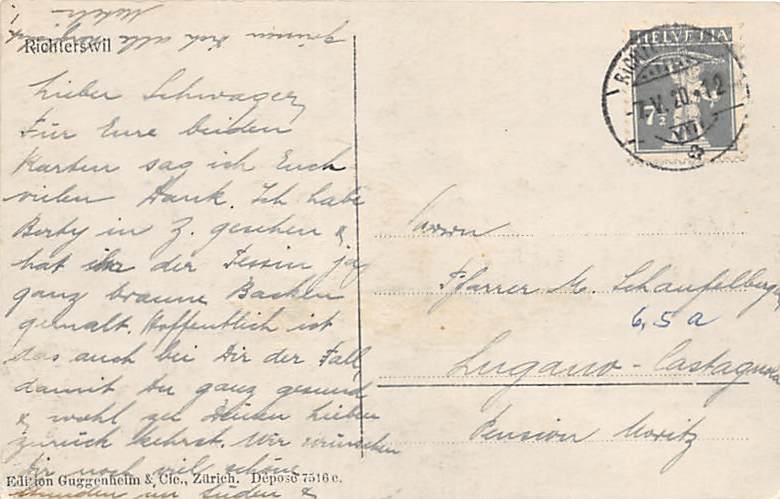 Richterswil
Lieber Schwager,
Für Eure beiden
Karten sag ich Euch
vielen Dank. Ich habe
Berty in Z. gesehen &
hat ihr der Tessin ja
ganz braune Backen
gemalt. Hoffentlich ist
das auch bei Dir der Fall,
damit Du ganz gesund
& wohl zu Deinen Lieben
zurück kehrst. Wir wünschen
Dir noch viel schöne
Stunden im Süden &
grüssen Dich alle
HELVETIA
7½
7.V.20.-12
VIII
Herrn
Pfarrer M. Schaufelberger
6,5 a
Lugano-Castagnola
Pension Moritz
Edition Guggenheim & Cie., Zürich. Déposé 7516 c.